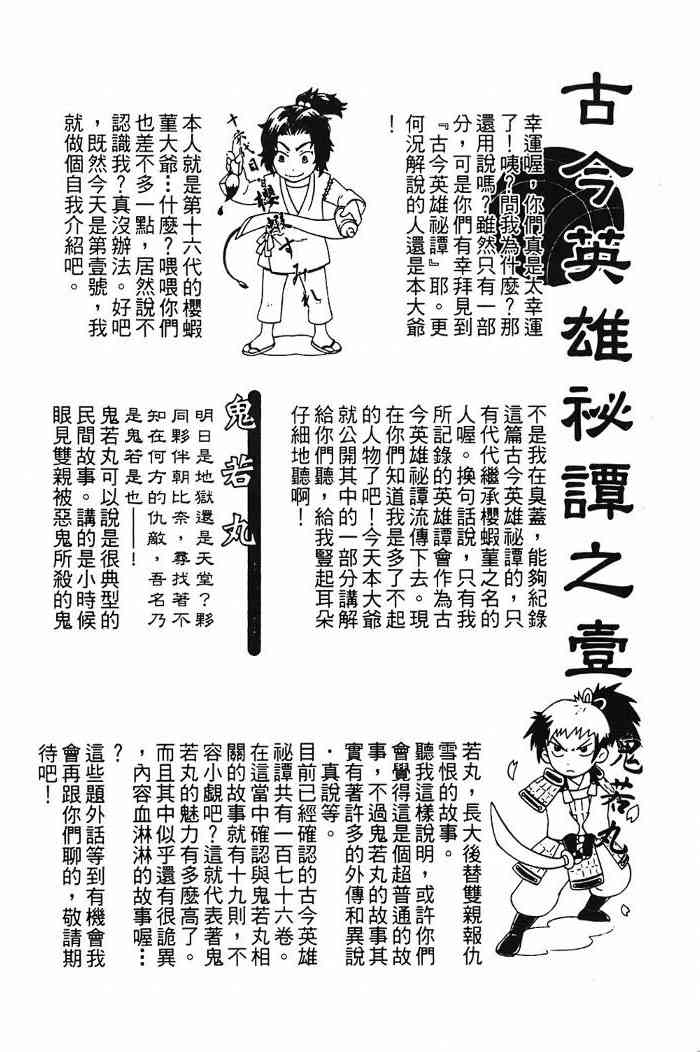 古今英雄祕譚之壹
幸運喔，你們真是太幸運
了！咦？問我為什麼？那
還用說嗎？雖然只有一部
分，可是你們有幸拜見到
『古今英雄祕譚』耶。更
何況解說的人還是本大爺
！
十六代目
櫻蝦
すみれ
本人就是第十六代的櫻蝦
菫大爺…什麼？喂喂你們
也差不多一點，居然說不
認識我？真沒辦法。好吧
，既然今天是第壹號，我
就做個自我介紹吧。
不是我在臭蓋，能夠紀錄
這篇古今英雄祕譚的，只
有代代繼承櫻蝦菫之名的
人喔。換句話說，只有我
所記錄的英雄譚會作為古
今英雄祕譚流傳下去。現
在你們知道我是多了不起
的人物了吧！今天本大爺
就公開其中的一部分講解
給你們聽，給我豎起耳朵
仔細地聽啊！
鬼若丸
明日是地獄還是天堂？夥
同夥伴朝比奈，尋找著不
知在何方的仇敵，吾名乃
是鬼若是也——！
鬼若丸可以說是很典型的
民間故事。講的是小時候
眼見雙親被惡鬼所殺的鬼
鬼若丸
若丸，長大後替雙親報仇
雪恨的故事。
聽我這樣說明，或許你們
會覺得這是個超普通的故
事，不過鬼若丸的故事其
實有著許多的外傳和異說
．真說等。
目前已經確認的古今英雄
祕譚共有一百七十六卷。
在這當中確認與鬼若丸相
關的故事就有十九則，不
容小覷吧？這就代表著鬼
若丸的魅力有多麼高了。
而且其中似乎還有很詭異
，內容血淋淋的故事喔…
？
這些題外話等到有機會我
會再跟你們聊的，敬請期
待吧！